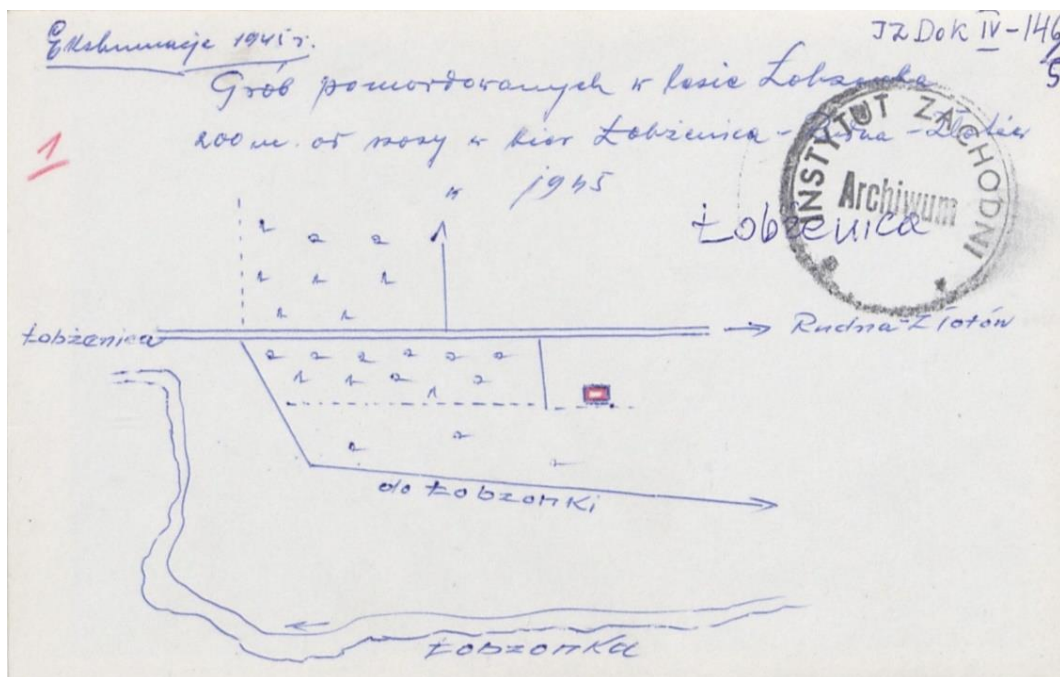 Ekshumacje 1945 r.
IZ Dok IV-146
Grób pomordowanych w lesie Łobżonka
1
200 m. od szosy w kier Łobżenica - Rudna - Złotów
w 1945
Łobżenica
INSTYTUT ZACHODNI
Archiwum
Łobżenica
Rudna-Złotów
do Łobzonki
Łobzonka